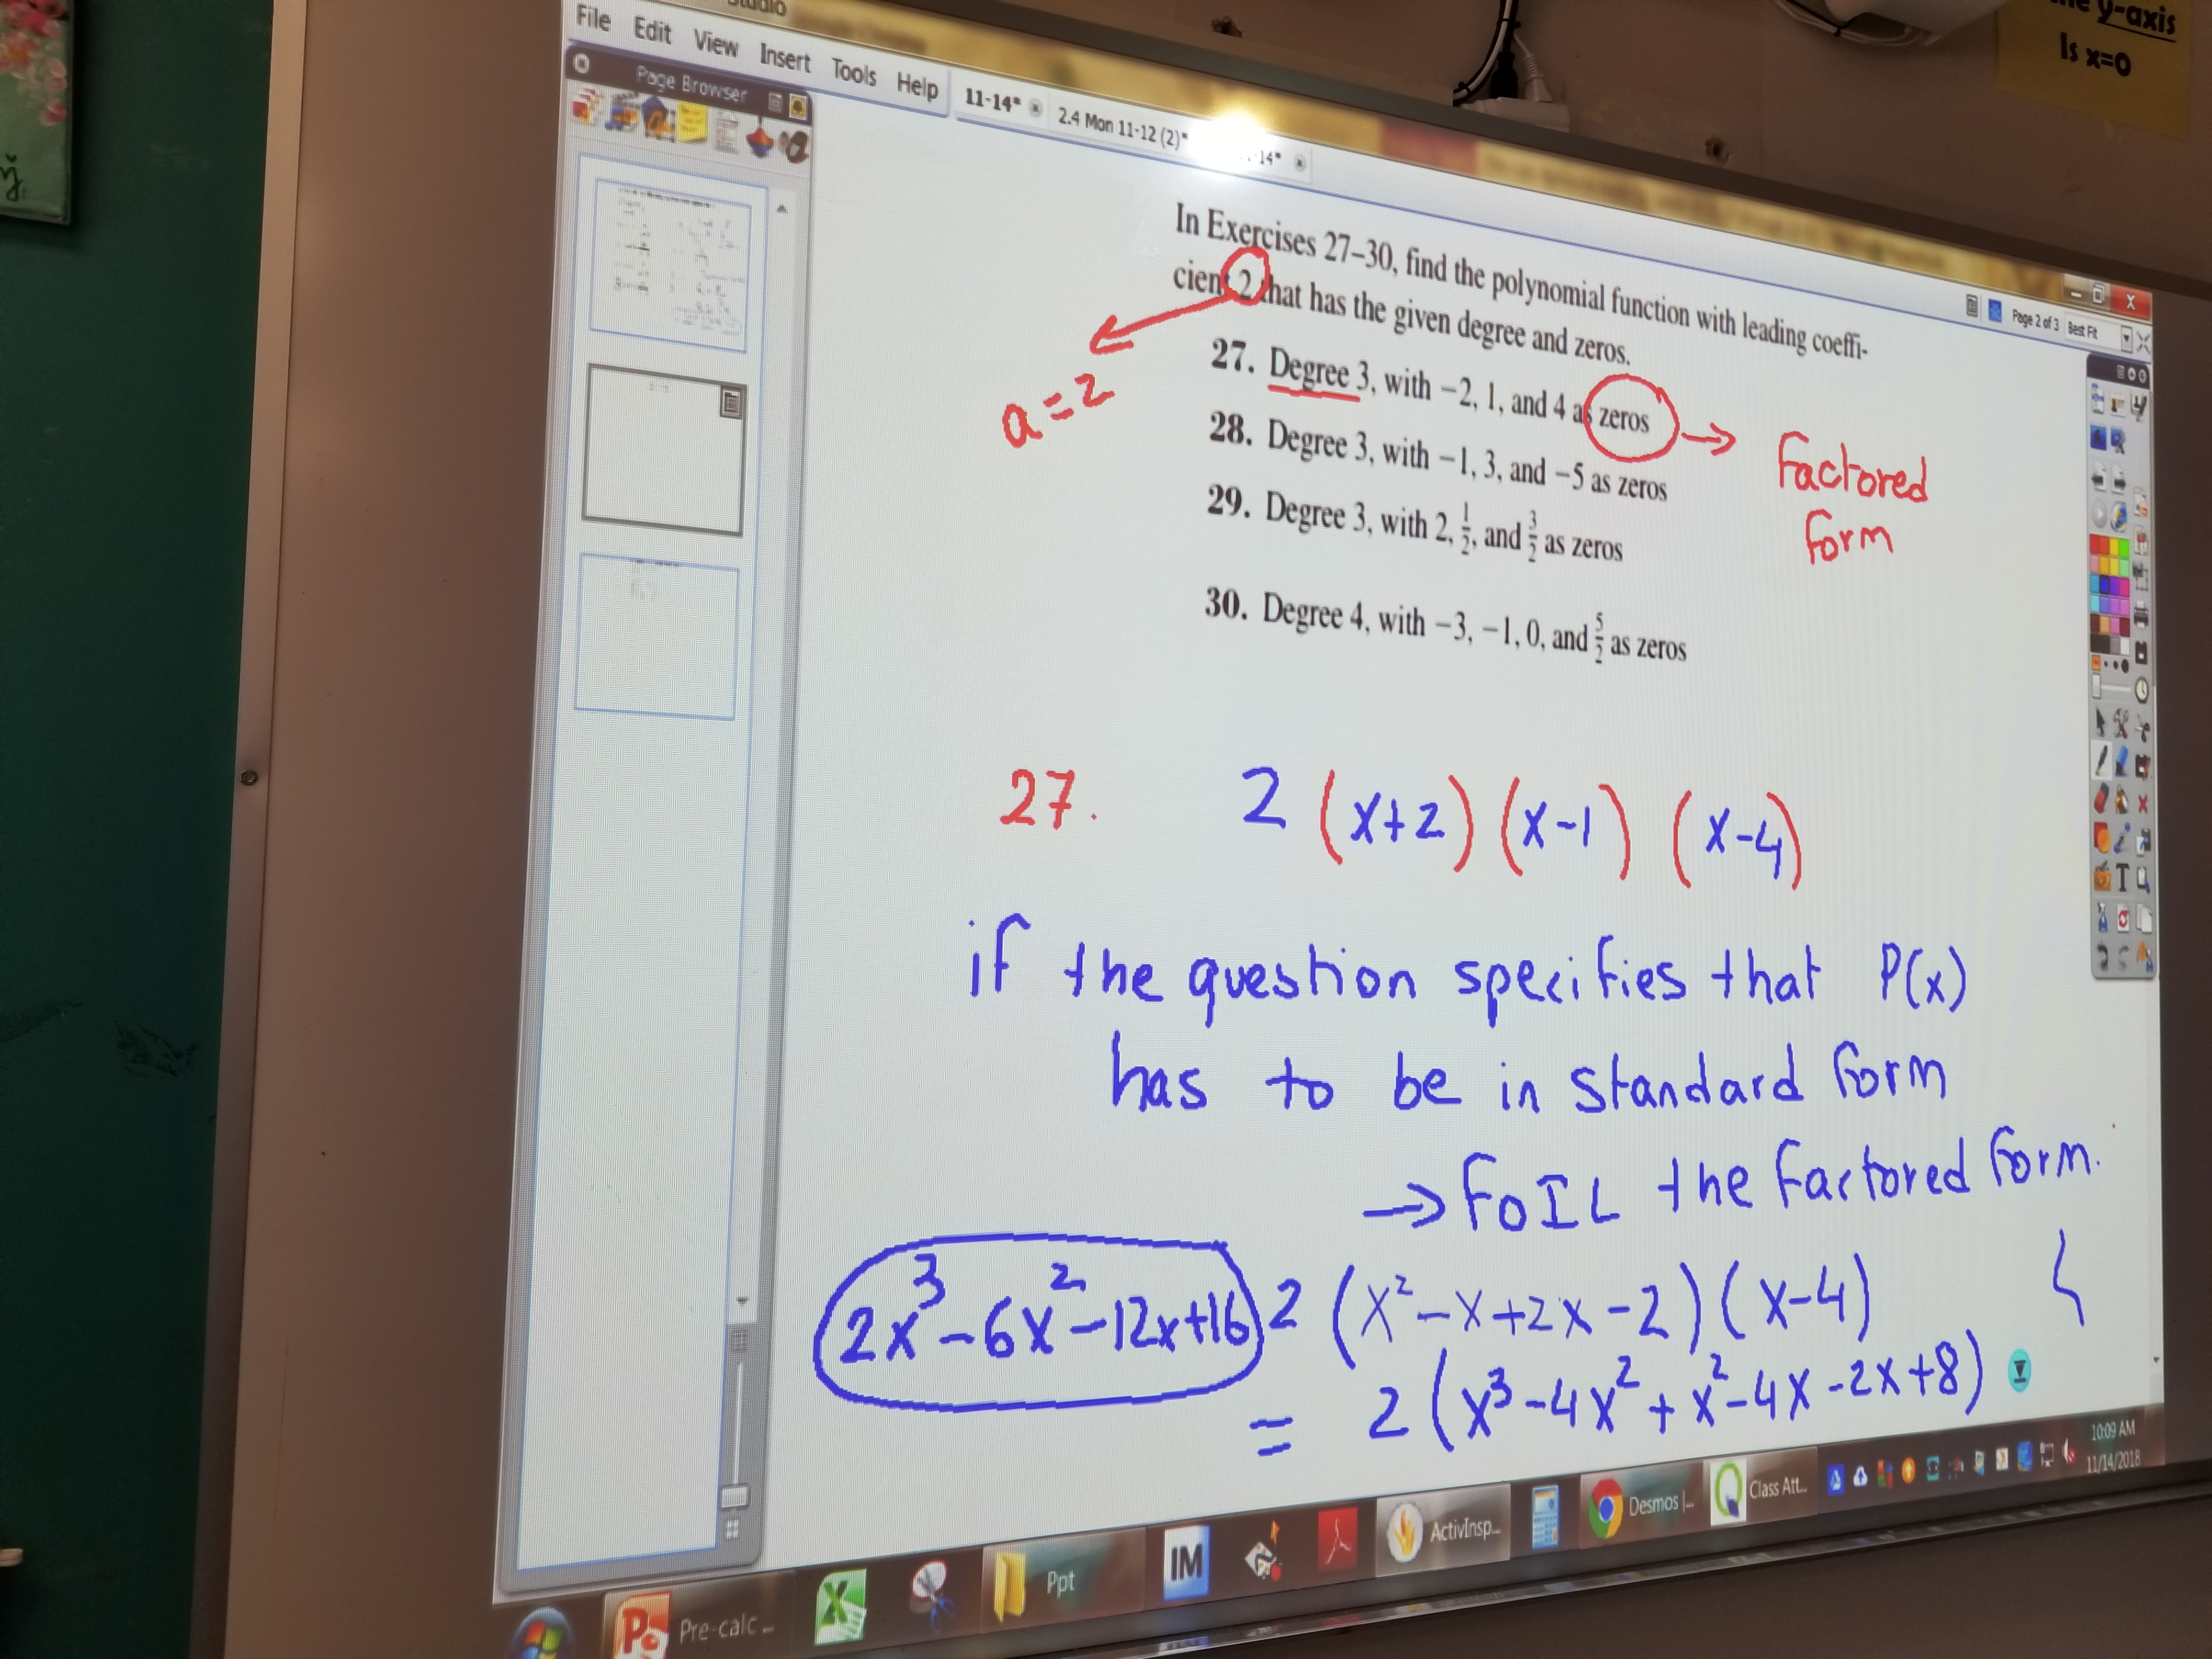 y-axis
Is x=0
File Edit View Insert Tools Help
Page Browser
11-14* 2.4 Mon 11-12 (2)* 14*
Page 2 of 3 Best Fit
In Exercises 27–30, find the polynomial function with leading coeffi-
cient 2 that has the given degree and zeros.
27. Degree 3, with −2, 1, and 4 as zeros
28. Degree 3, with −1, 3, and −5 as zeros
29. Degree 3, with 2, 1/2, and 3/2 as zeros
30. Degree 4, with −3, −1, 0, and 5/2 as zeros
a = 2
Factored
form
27. 2 (x+2) (x-1) (x-4)
if the question specifies that P(x)
has to be in standard form
→ FOIL the factored form.
2x³-6x²-12x+16 2 (x²-x+2x-2)(x-4)
= 2 (x³-4x²+x²-4x-2x+8)
10:09 AM
11/14/2018
Pre-calc ... Ppt IM ActivInsp... Desmos |... Class Att...